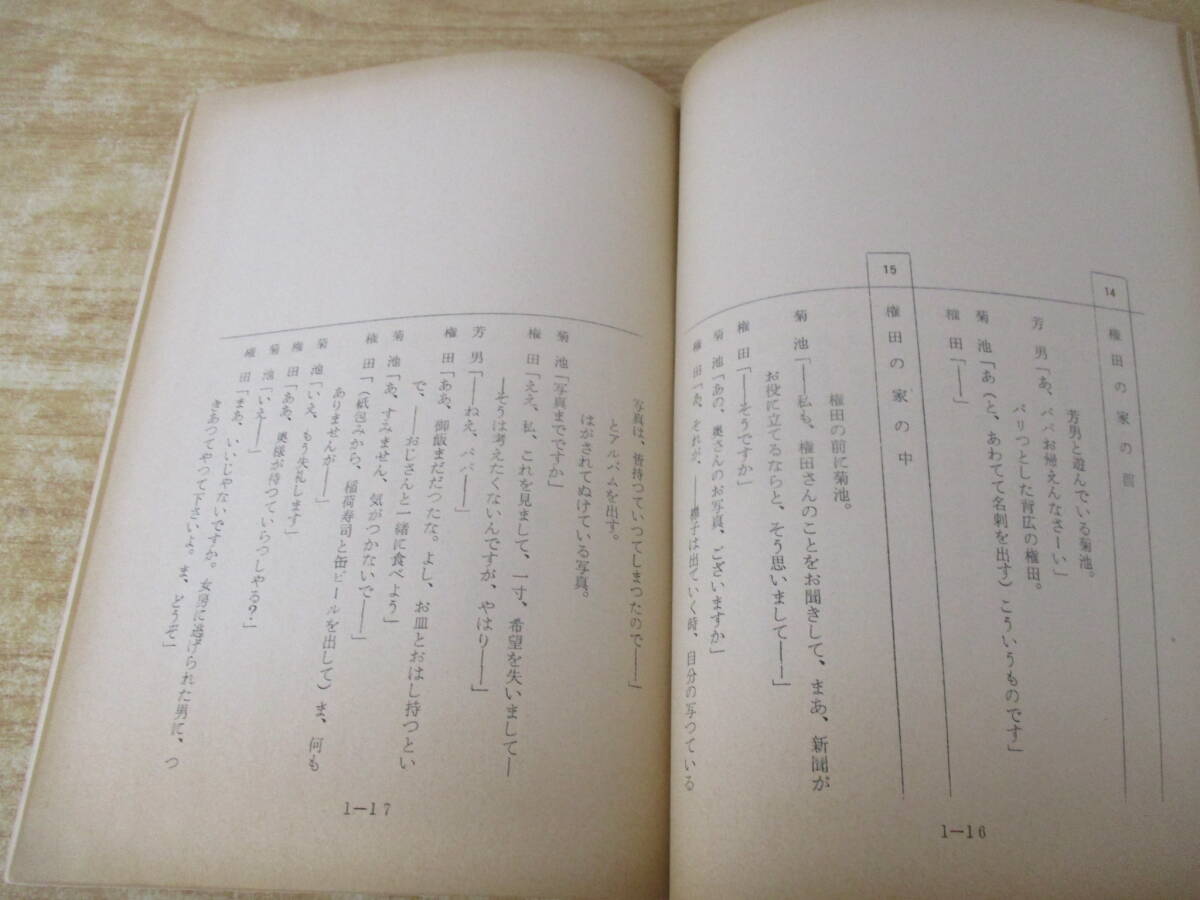 14
権田の家の
芳男と遊んでいる菊池。
芳男「あ、パパお帰えんなさーい」
パリつとした背広の権田。
菊池「あ(と、あわてて名刺を出す)こういうものです」
権田「――」
15
権田の家の中
権田の前に菊池。
菊池「――私も、権田さんのことをお聞きして、まあ、新聞が
お役に立てるならと、そう思いまして――」
権田「――そうですか」
菊池「あの、奥さんのお写真、ございますか」
権田「あ、それが、――子は出ていく時、自分の写つている
1―16
写真は、皆持つていつてしまつたので――」
とアルバムを出す。
はがされてぬけている写真。
菊池「写真までですか」
権田「ええ、私、これを見まして、一寸、希望を失いまして―
―そうは考えたくないんですが、やはり――」
芳男「――ねえ、パパ――」
権田「ああ、御飯まだだつたな。よし、お皿とおはし持つとい
で、――おじさんと一緒に食べよう」
菊池「あ、すみません、気がつかないで――」
権田「(紙包みから、稲荷寿司と缶ビールを出して)ま、何も
ありませんが――」
菊池「いえ、もう失礼します」
権田「ああ、奥様が待つていらつしやる?」
菊池「いえ――」
権田「まあ、いいじやないですか。女房に逃げられた男に、つ
きあつてやつて下さいよ。ま、どうぞ」
1―17